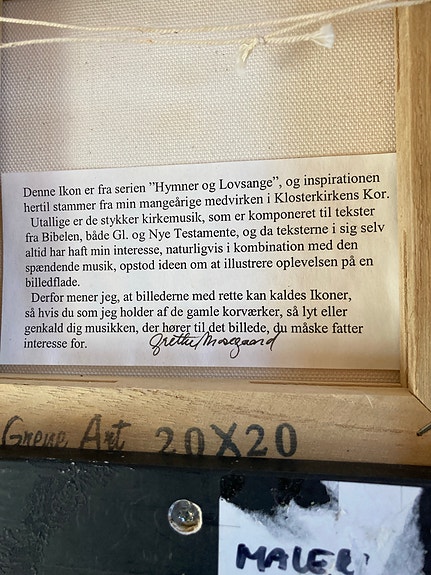 Denne Ikon er fra serien ”Hymner og Lovsange”, og inspirationen
hertil stammer fra min mangeårige medvirken i Klosterkirkens Kor.
Utallige er de stykker kirkemusik, som er komponeret til tekster
fra Bibelen, både Gl. og Nye Testamente, og da teksterne i sig selv
altid har haft min interesse, naturligvis i kombination med den
spændende musik, opstod ideen om at illustrere oplevelsen på en
billedflade.
Derfor mener jeg, at billederne med rette kan kaldes Ikoner,
så hvis du som jeg holder af de gamle korværker, så lyt eller
genkald dig musikken, der hører til det billede, du måske fatter
interesse for. Grethe Mosegaard
Grene Art 20X20
MALERI